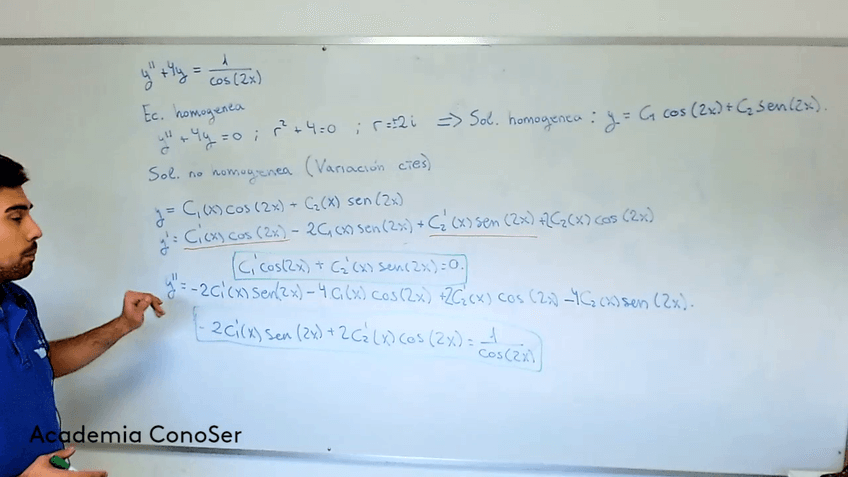 y'' + 4y = 1/cos(2x)
Ec. homogenea
y'' + 4y = 0 ; r² + 4 = 0 ; r = ±2i => Sol. homogenea : y = C₁ cos(2x) + C₂ sen(2x).
Sol. no homogenea (Variación ctes)
y = C₁(x) cos(2x) + C₂(x) sen(2x)
y' = C₁'(x) cos(2x) - 2C₁(x) sen(2x) + C₂'(x) sen(2x) + 2C₂(x) cos(2x)
C₁' cos(2x) + C₂'(x) sen(2x) = 0.
y'' = -2C₁'(x) sen(2x) - 4C₁(x) cos(2x) + 2C₂'(x) cos(2x) - 4C₂(x) sen(2x).
- 2C₁'(x) sen(2x) + 2C₂'(x) cos(2x) = 1/cos(2x)
Academia ConoSer